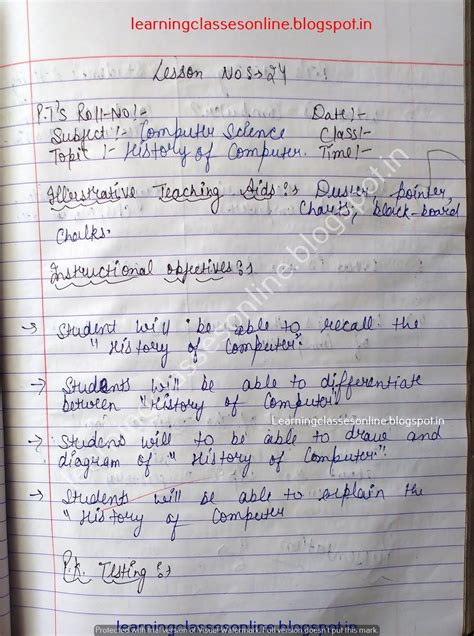 learningclassesonline.blogspot.in
Lesson NOS:24
P.T's Roll-No:- Date:-
Subject :- Computer Science Class:-
Topic :- History of Computer. Time:-
Illustrative Teaching Aids :s Duster, pointer,
Charts, black-board
Chalks.
Instructional objectives :s
→ Student will be able to recall the
" History of Computer".
→ Students will be able to differentiate
between "History of Computer"
Learningclassesonline.blogspot.in
→ Students will to be able to draw and
diagram of " History of Computer"
→ Students will be able to explain the
"History of Computer
P.k. Testing :s
learningclassesonline.blogspot.in
Protected with trial version of Visual Watermark. Full version doesn't put this mark.
learningclassesonline.blogspot.in